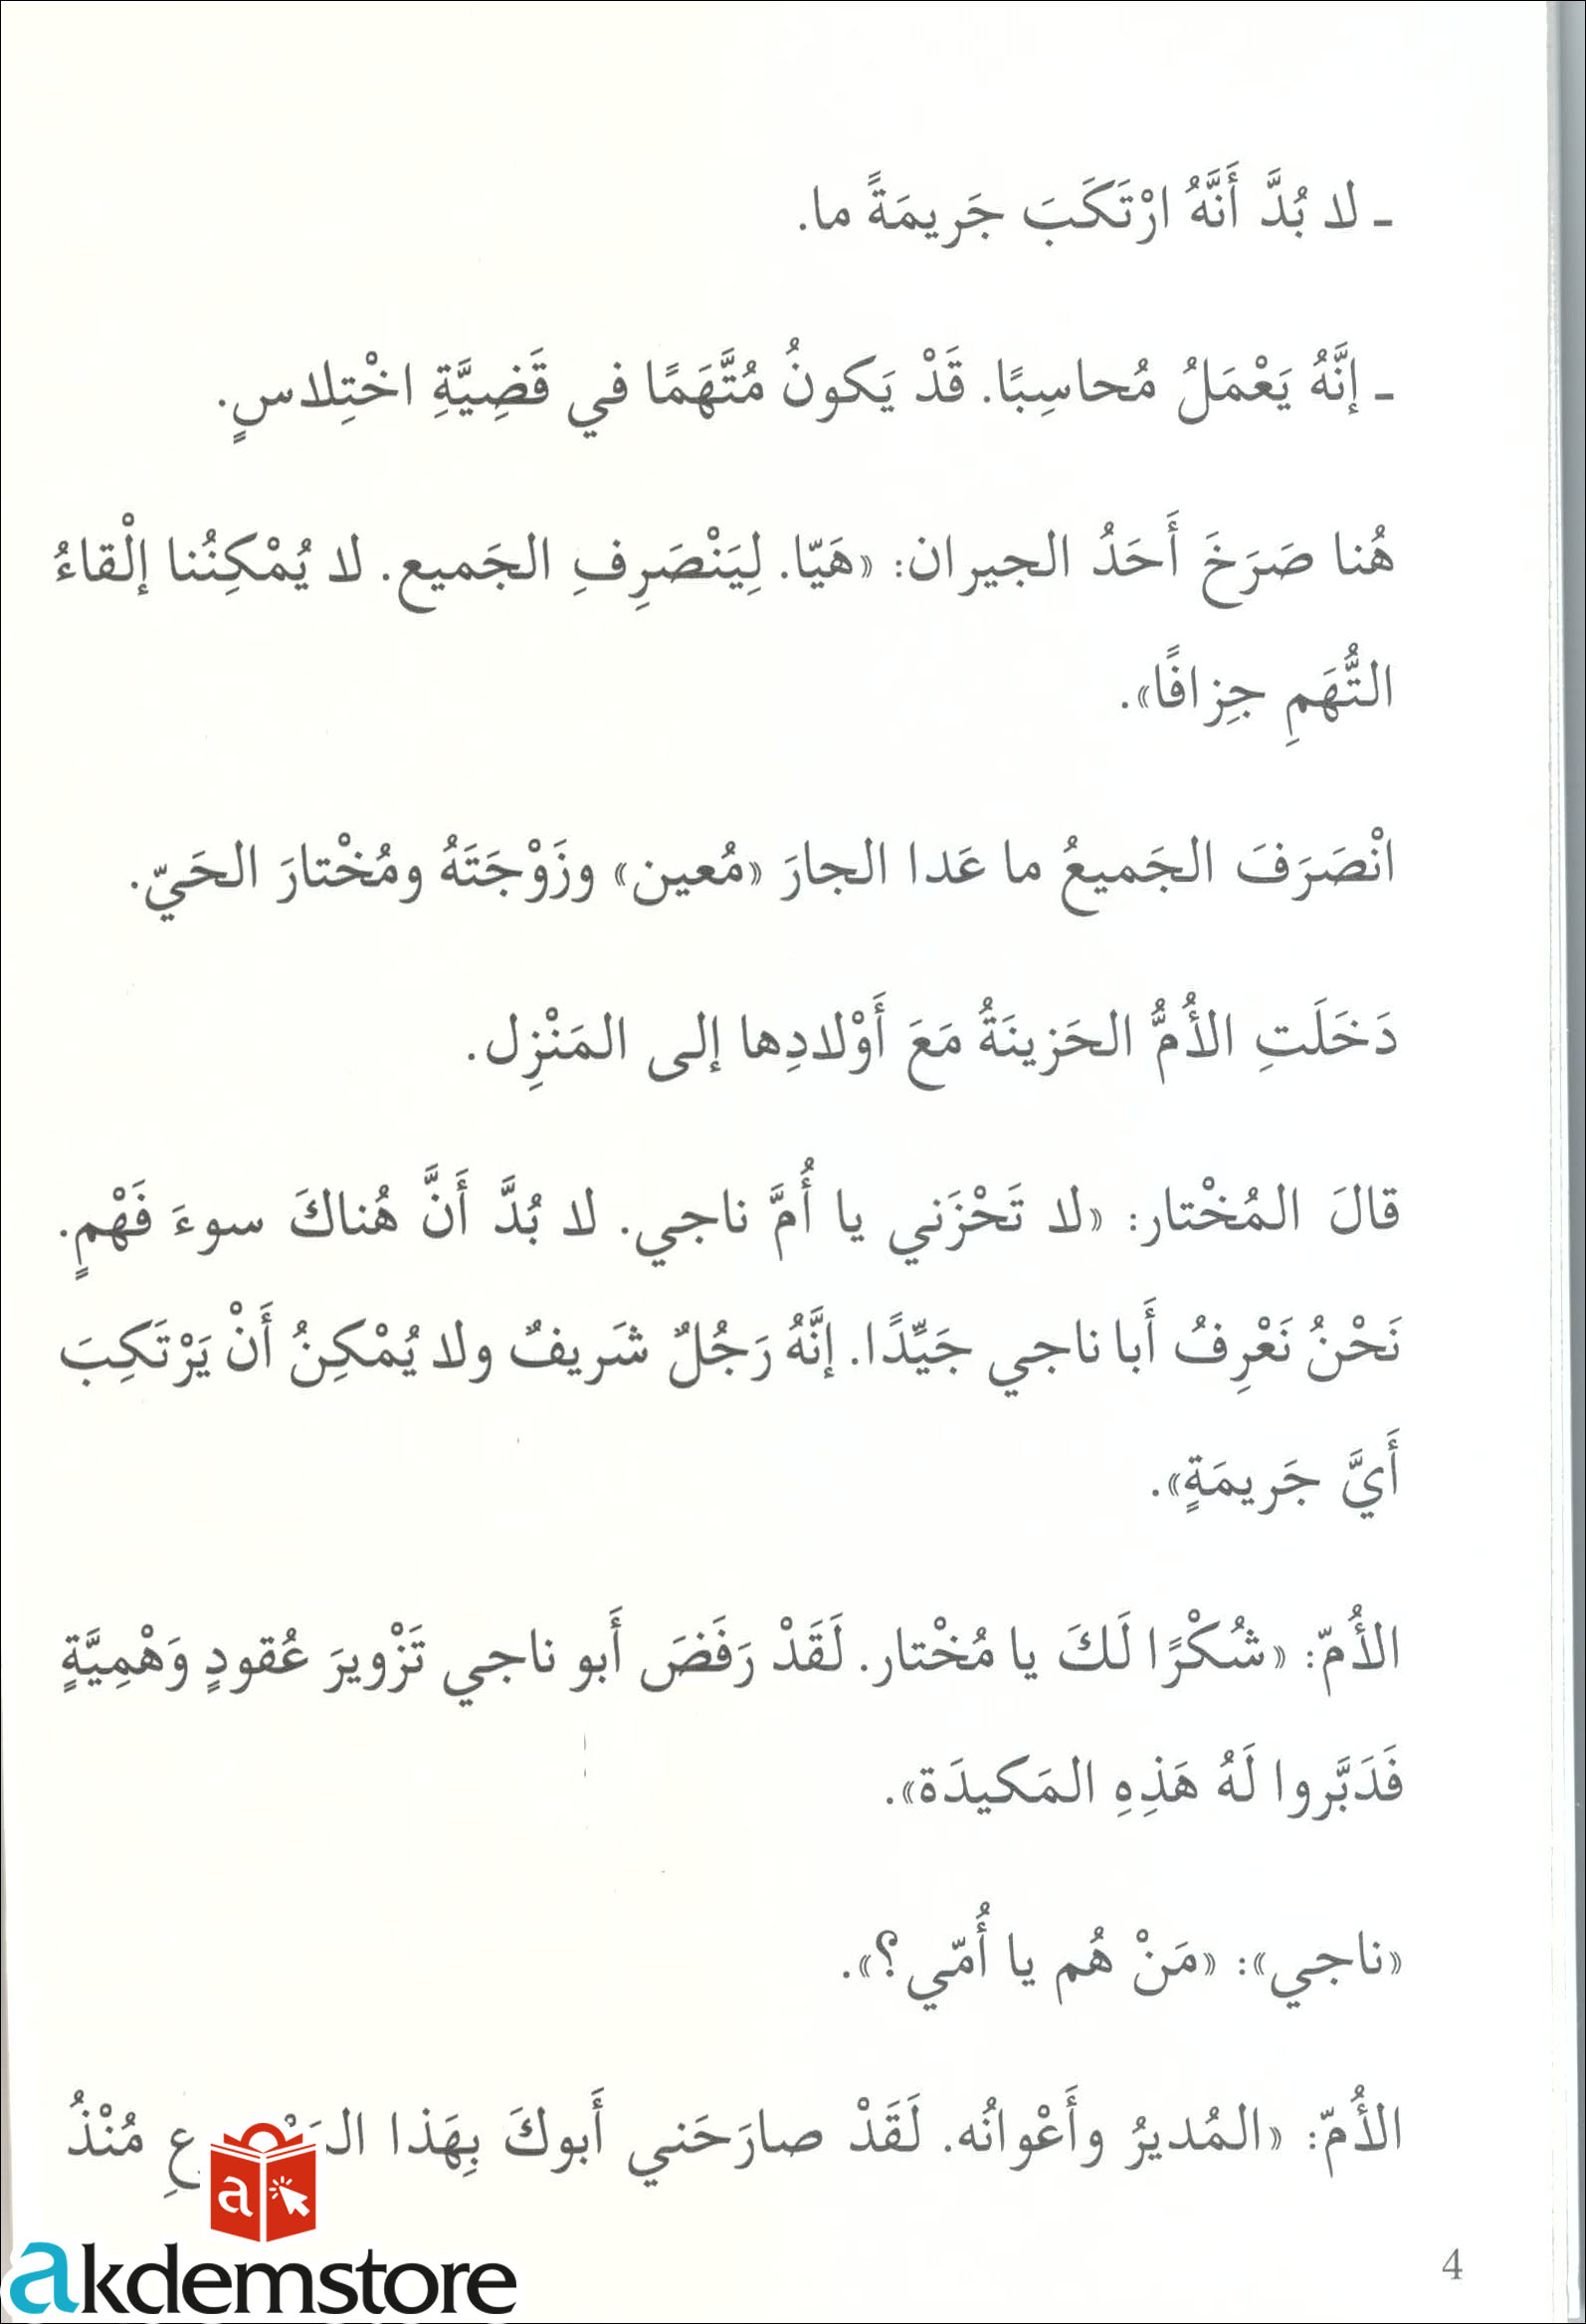 ـ لا بُدَّ أَنَّهُ ارْتَكَبَ جَريمَةً ما.
ـ إنَّهُ يَعْمَلُ مُحاسِبًا. قَدْ يَكونُ مُتَّهَمًا في قَضِيَّةِ اخْتِلاسٍ.
هُنا صَرَخَ أَحَدُ الجيران: «هَيّا. لِيَنْصَرِفِ الجَميع. لا يُمْكِنُنا إلْقاءُ
التُّهَمِ جِزافًا».
انْصَرَفَ الجَميعُ ما عَدا الجارَ «مُعين» وزَوْجَتَهُ ومُخْتارَ الحَيّ.
دَخَلَتِ الأُمُّ الحَزينَةُ مَعَ أَوْلادِها إلى المَنْزِل.
قالَ المُخْتار: «لا تَحْزَني يا أُمَّ ناجي. لا بُدَّ أَنَّ هُناكَ سوءَ فَهْمٍ.
نَحْنُ نَعْرِفُ أَبا ناجي جَيِّدًا. إنَّهُ رَجُلٌ شَريفٌ ولا يُمْكِنُ أَنْ يَرْتَكِبَ
أَيَّ جَريمَةٍ».
الأُمّ: «شُكْرًا لَكَ يا مُخْتار. لَقَدْ رَفَضَ أَبو ناجي تَزْويرَ عُقودٍ وَهْمِيَّةٍ
فَدَبَّروا لَهُ هَذِهِ المَكيدَة».
«ناجي»: «مَنْ هُم يا أُمّي؟».
الأُمّ: «المُديرُ وأَعْوانُه. لَقَدْ صارَحَني أَبوكَ بِهَذا مُنْذُ
a
akdemstore
4